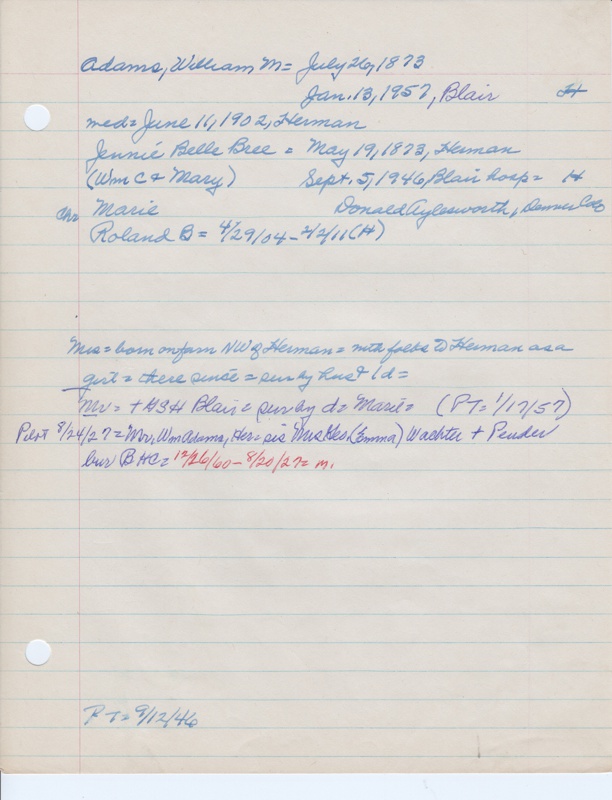 Adams, William M = July 26, 1873
Jan. 13, 1957, Blair H
med = June 11, 1902, Herman
Jennie Belle Bree = May 19, 1873, Herman
(Wm C & Mary) Sept. 5, 1946, Blair hosp = H
Chr Marie Donald Aylesworth, Denver Colo
Roland B = 4/29/04 - 2/2/11 (H)
Mrs = born on farm NW of Herman = with folks to Herman as a
girl = there since = sur by husb 1d =
Mr = + HSH Blair = sur by d = Marie = (PT = 1/17/57)
Pilot 8/24/27 = Mrs. Wm Adams, Her = sis Mrs Geo. (Emma) Wachter + Pender
bur BHC = 12/26/60 - 8/20/27 = m.
PT = 9/12/46